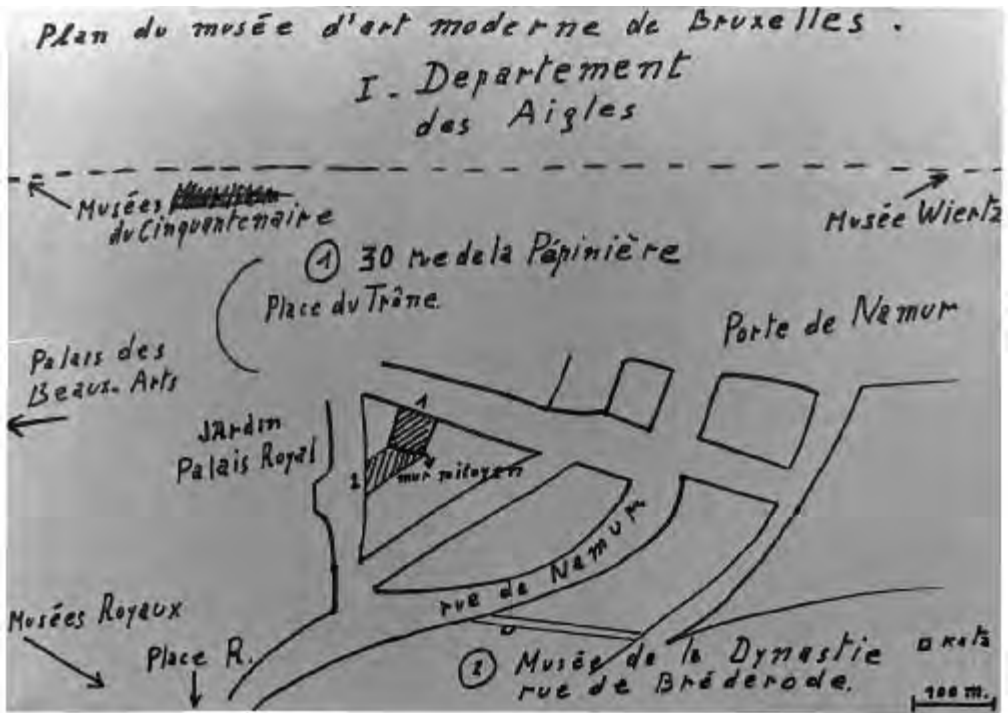 Plan du musée d'art moderne de Bruxelles.
I - Departement
des Aigles
Musées
du Cinquantenaire
Musée Wiertz
1 30 rue de la Pépinière
Place du Trône.
Porte de Namur
Palais des
Beaux-Arts
Jardin
Palais Royal
1
2
mur mitoyen
rue de Namur
Musées Royaux
Place R.
2 Musée de la Dynastie
rue de Bréderode.
100 m.